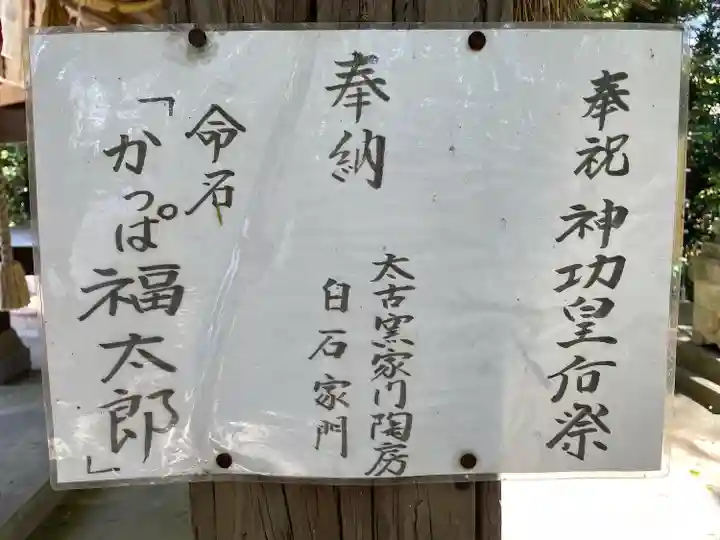 奉祝 神功皇后祭
奉納
太古窯家門陶房
臼石家門
命名
「かっぱ福太郎」